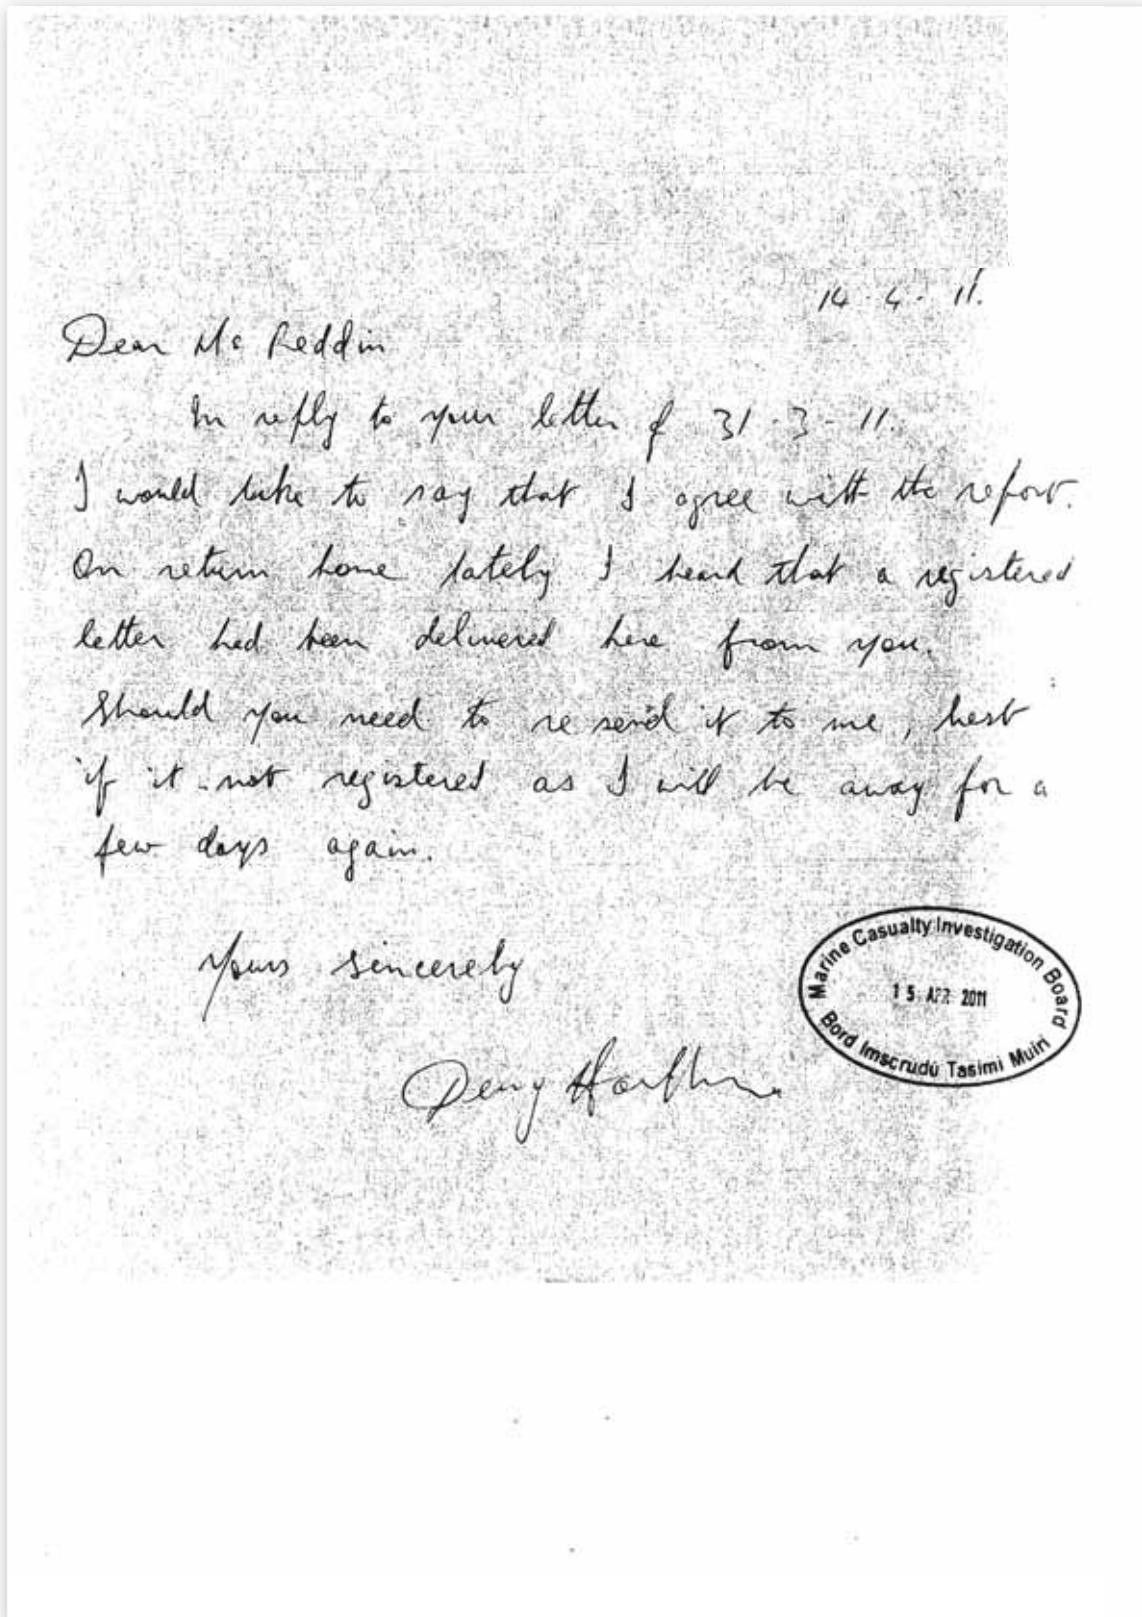 14.4.11.
Dear Ms Reddin
In reply to your letter of 31.3.11.
I would like to say that I agree with the report.
On return home lately I heard that a registered
letter had been delivered here from you.
Should you need to resend it to me, best
if it not registered as I will be away for a
few days again.
Yours sincerely
Marine Casualty Investigation Board
15 APR 2011
Bord Imscrúdú Taismí Muirí